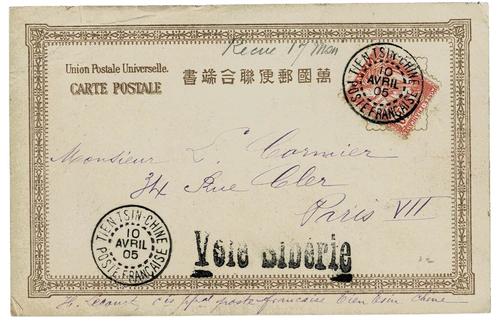 Recue 17 Mai
Union Postale Universelle.
CARTE POSTALE
書端合聯便郵國萬
TIEN-TSIN-CHINE
10
AVRIL
05
POSTE FRANÇAISE
Monsieur L. Cormier
34 Rue Cler
Paris VII
TIEN-TSIN-CHINE
10
AVRIL
05
POSTE FRANÇAISE
Voie Sibérie
poste francaise Tien Tsin Chine